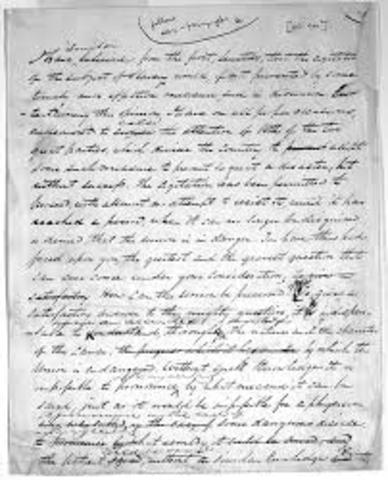 I have believed from the first, Senators, that the agitation
of the subject of slavery would, if not prevented by some
timely and effective measure end in disunion. Enter
taining this opinion, I have on all proper occasions,
endeavored to call the attention of both of the two
great parties, which divide the country to adopt
some such measure to prevent so great a disaster, but
without success. The agitation has been permitted to
proceed, with almost no attempt to resist it, until it has
reached a point, when it can no longer be disguised
or denied that the union is in danger. You have thus had
forced upon you the greatest and the gravest question that
can ever come under your consideration,
How can the union be preserved? To give a
satisfactory answer to this mighty question, it is indispen
sable to the nature and the character
of the cause, by which the
Union is endangered. Without such knowledge it is
impossible to pronounce by what measure it can be
saved, just as it would be impossible for a physician
in the case of some dangerous disease
to pronounce by what remedy
the patient without similar knowledge